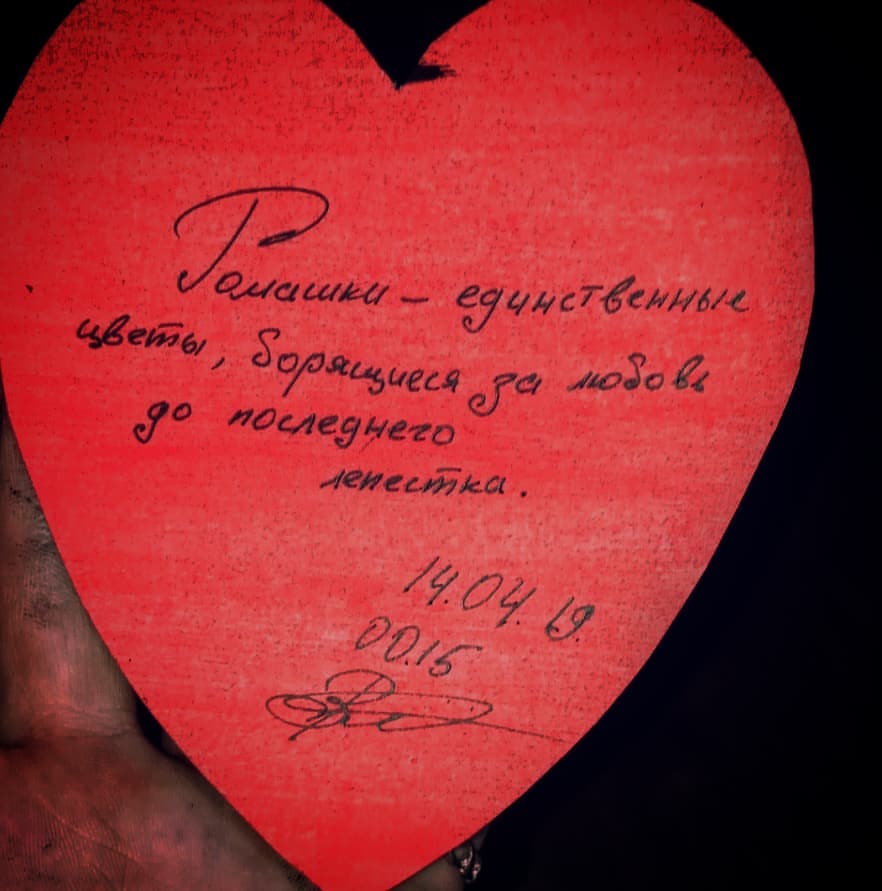 Ромашки – единственные
цветы, борящиеся за любовь
до последнего
лепестка.
14.04.19.
00.15